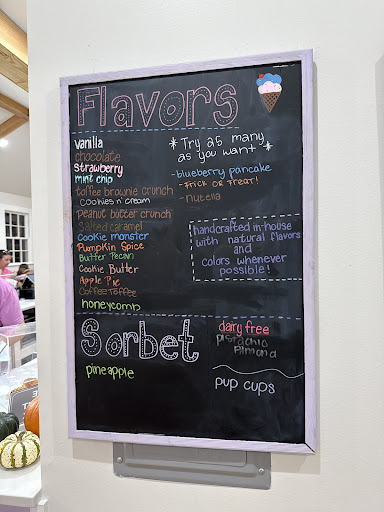 Flavors
vanilla
chocolate
strawberry
mint chip
toffee brownie crunch
cookies n' cream
peanut butter crunch
salted caramel
cookie monster
Pumpkin Spice
Butter Pecan
Cookie Butter
Apple Pie
Coffee Toffee
honeycomb
* Try as many
as you want *
- blueberry pancake
- Trick or Treat!
- nutella
handcrafted in-house
with natural flavors
and
colors whenever
possible!
Sorbet
pineapple
dairy free
pistachio
pup cups